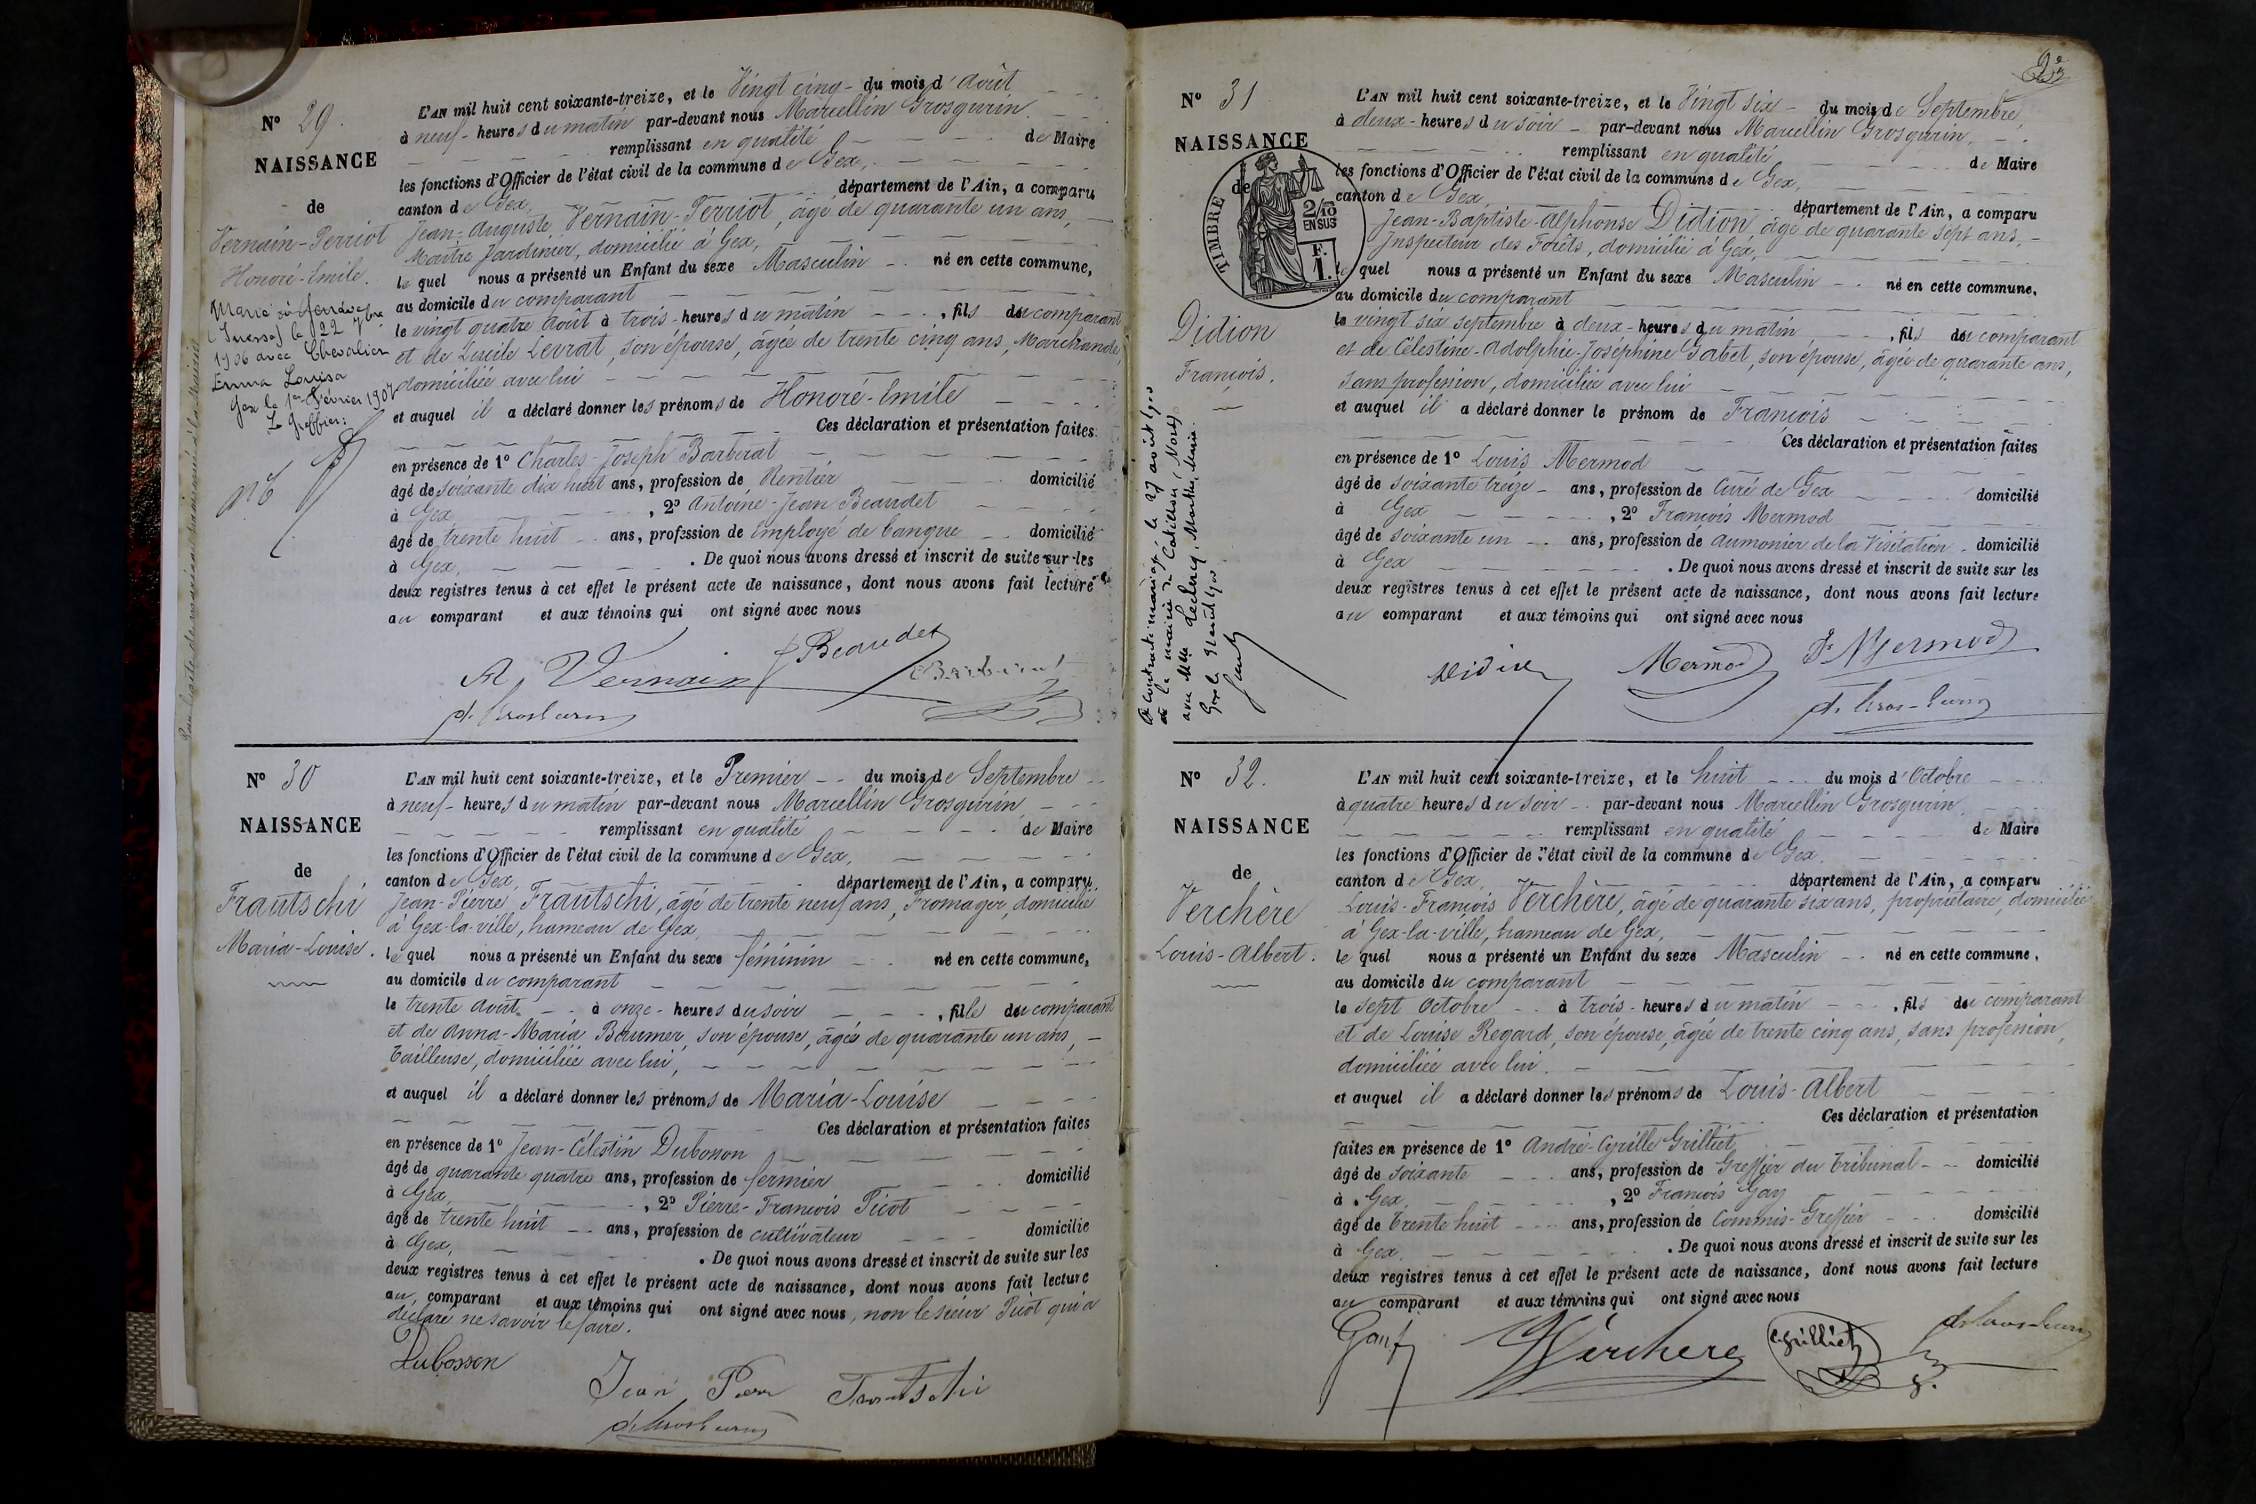 Nº 29.
NAISSANCE
de
Vernain-Perriot
Honoré-Emile.
Marié à Genève
(Suisse) le 22 7bre
1906 avec Chevalier
Emma Louisa
Gex le 1er Février 1907
Le Greffier:
L'AN mil huit cent soixante-treize, et le Vingt cinq - du mois d'Août
à neuf - heures du matin par-devant nous Marcellin Grosgurin
remplissant en qualité de Maire
les fonctions d'Officier de l'état civil de la commune de Gex,
canton de Gex, département de l'Ain, a comparu
Jean-Auguste Vernain-Perriot, âgé de quarante un ans,
Maître Jardinier, domicilié à Gex,
lequel nous a présenté un Enfant du sexe Masculin né en cette commune,
au domicile du comparant
le vingt quatre Août à trois - heures du matin , fils du comparant
et de Lucile Levrat, son épouse, âgée de trente cinq ans, Marchande,
domiciliée avec lui
et auquel il a déclaré donner les prénoms de Honoré-Emile
Ces déclaration et présentation faites
en présence de 1º Charles-Joseph Barberat
âgé de soixante dix huit ans, profession de Rentier domicilié
à Gex , 2º Antoine-Jean Beaudet
âgé de trente huit ans, profession de Employé de banque domicilié
à Gex, . De quoi nous avons dressé et inscrit de suite sur les
deux registres tenus à cet effet le présent acte de naissance, dont nous avons fait lecture
au comparant et aux témoins qui ont signé avec nous
A. Vernain Beaudet Barberat
Nº 30
NAISSANCE
de
Frautschi
Maria-Louise.
L'AN mil huit cent soixante-treize, et le Premier du mois de Septembre
à neuf - heures du matin par-devant nous Marcellin Grosgurin
remplissant en qualité de Maire
les fonctions d'Officier de l'état civil de la commune de Gex,
canton de Gex, département de l'Ain, a comparu
Jean-Pierre Frautschi, âgé de trente neuf ans, Fromager, domicilié
à Gex-la-ville, hameau de Gex,
lequel nous a présenté un Enfant du sexe féminin né en cette commune,
au domicile du comparant
le trente Août à onze - heures du soir , fille du comparant
et de Anna-Maria Baumer son épouse, âgée de quarante un ans,
Tailleuse, domiciliée avec lui,
et auquel il a déclaré donner les prénoms de Maria-Louise
Ces déclaration et présentation faites
en présence de 1º Jean-Célestin Dubosson
âgé de quarante quatre ans, profession de fermier domicilié
à Gex, , 2º Pierre-François Picot
âgé de trente huit ans, profession de cultivateur domicilié
à Gex, . De quoi nous avons dressé et inscrit de suite sur les
deux registres tenus à cet effet le présent acte de naissance, dont nous avons fait lecture
au comparant et aux témoins qui ont signé avec nous, non le sieur Picot qui a
déclaré ne savoir le faire.
Dubosson
Jean Pierre Frautschi
Nº 31
NAISSANCE
de
TIMBRE
2/10
EN SUS
F.
1.
Didion
François.
A contracté mariage, le 27 août 1900
à la mairie de Catillon, Nord,
avec Mlle Leclercq, Marthe, Marie.
L'AN mil huit cent soixante-treize, et le Vingt six - du mois de Septembre,
à deux - heures du soir - par-devant nous Marcellin Grosgurin,
remplissant en qualité de Maire
les fonctions d'Officier de l'état civil de la commune de Gex,
canton de Gex, département de l'Ain, a comparu
Jean-Baptiste-Alphonse Didion âgé de quarante sept ans,
Inspecteur des Forêts, domicilié à Gex,
lequel nous a présenté un Enfant du sexe Masculin né en cette commune,
au domicile du comparant
le vingt six septembre à deux - heures du matin , fils du comparant
et de Célestine-Adolphie-Joséphine Gabet, son épouse, âgée de quarante ans,
sans profession, domiciliée avec lui
et auquel il a déclaré donner le prénom de François
Ces déclaration et présentation faites
en présence de 1º Louis Mermod
âgé de soixante treize - ans, profession de Curé de Gex domicilié
à Gex , 2º François Mermod
âgé de soixante un ans, profession de aumonier de la Visitation domicilié
à Gex . De quoi nous avons dressé et inscrit de suite sur les
deux registres tenus à cet effet le présent acte de naissance, dont nous avons fait lecture
au comparant et aux témoins qui ont signé avec nous
Didion Mermod Fs Mermod
Nº 32.
NAISSANCE
de
Verchère
Louis-Albert.
L'AN mil huit cent soixante-treize, et le huit du mois d'Octobre
à quatre heures du soir par-devant nous Marcellin Grosgurin
remplissant en qualité de Maire
les fonctions d'Officier de l'état civil de la commune de Gex,
canton de Gex, département de l'Ain, a comparu
Louis-François Verchère, âgé de quarante six ans, propriétaire, domicilié
à Gex-la-ville, hameau de Gex,
lequel nous a présenté un Enfant du sexe Masculin né en cette commune,
au domicile du comparant
le sept Octobre à trois - heures du matin , fils du comparant
et de Louise Regard, son épouse, âgée de trente cinq ans, sans profession,
domiciliée avec lui.
et auquel il a déclaré donner les prénoms de Louis-Albert
Ces déclaration et présentation
faites en présence de 1º André-Cyrille Grilliet
âgé de soixante ans, profession de Greffier du Tribunal domicilié
à Gex, , 2º François Gay
âgé de trente huit ans, profession de Commis-Greffier domicilié
à Gex, . De quoi nous avons dressé et inscrit de suite sur les
deux registres tenus à cet effet le présent acte de naissance, dont nous avons fait lecture
au comparant et aux témoins qui ont signé avec nous
Gay f Verchere C. Grilliet